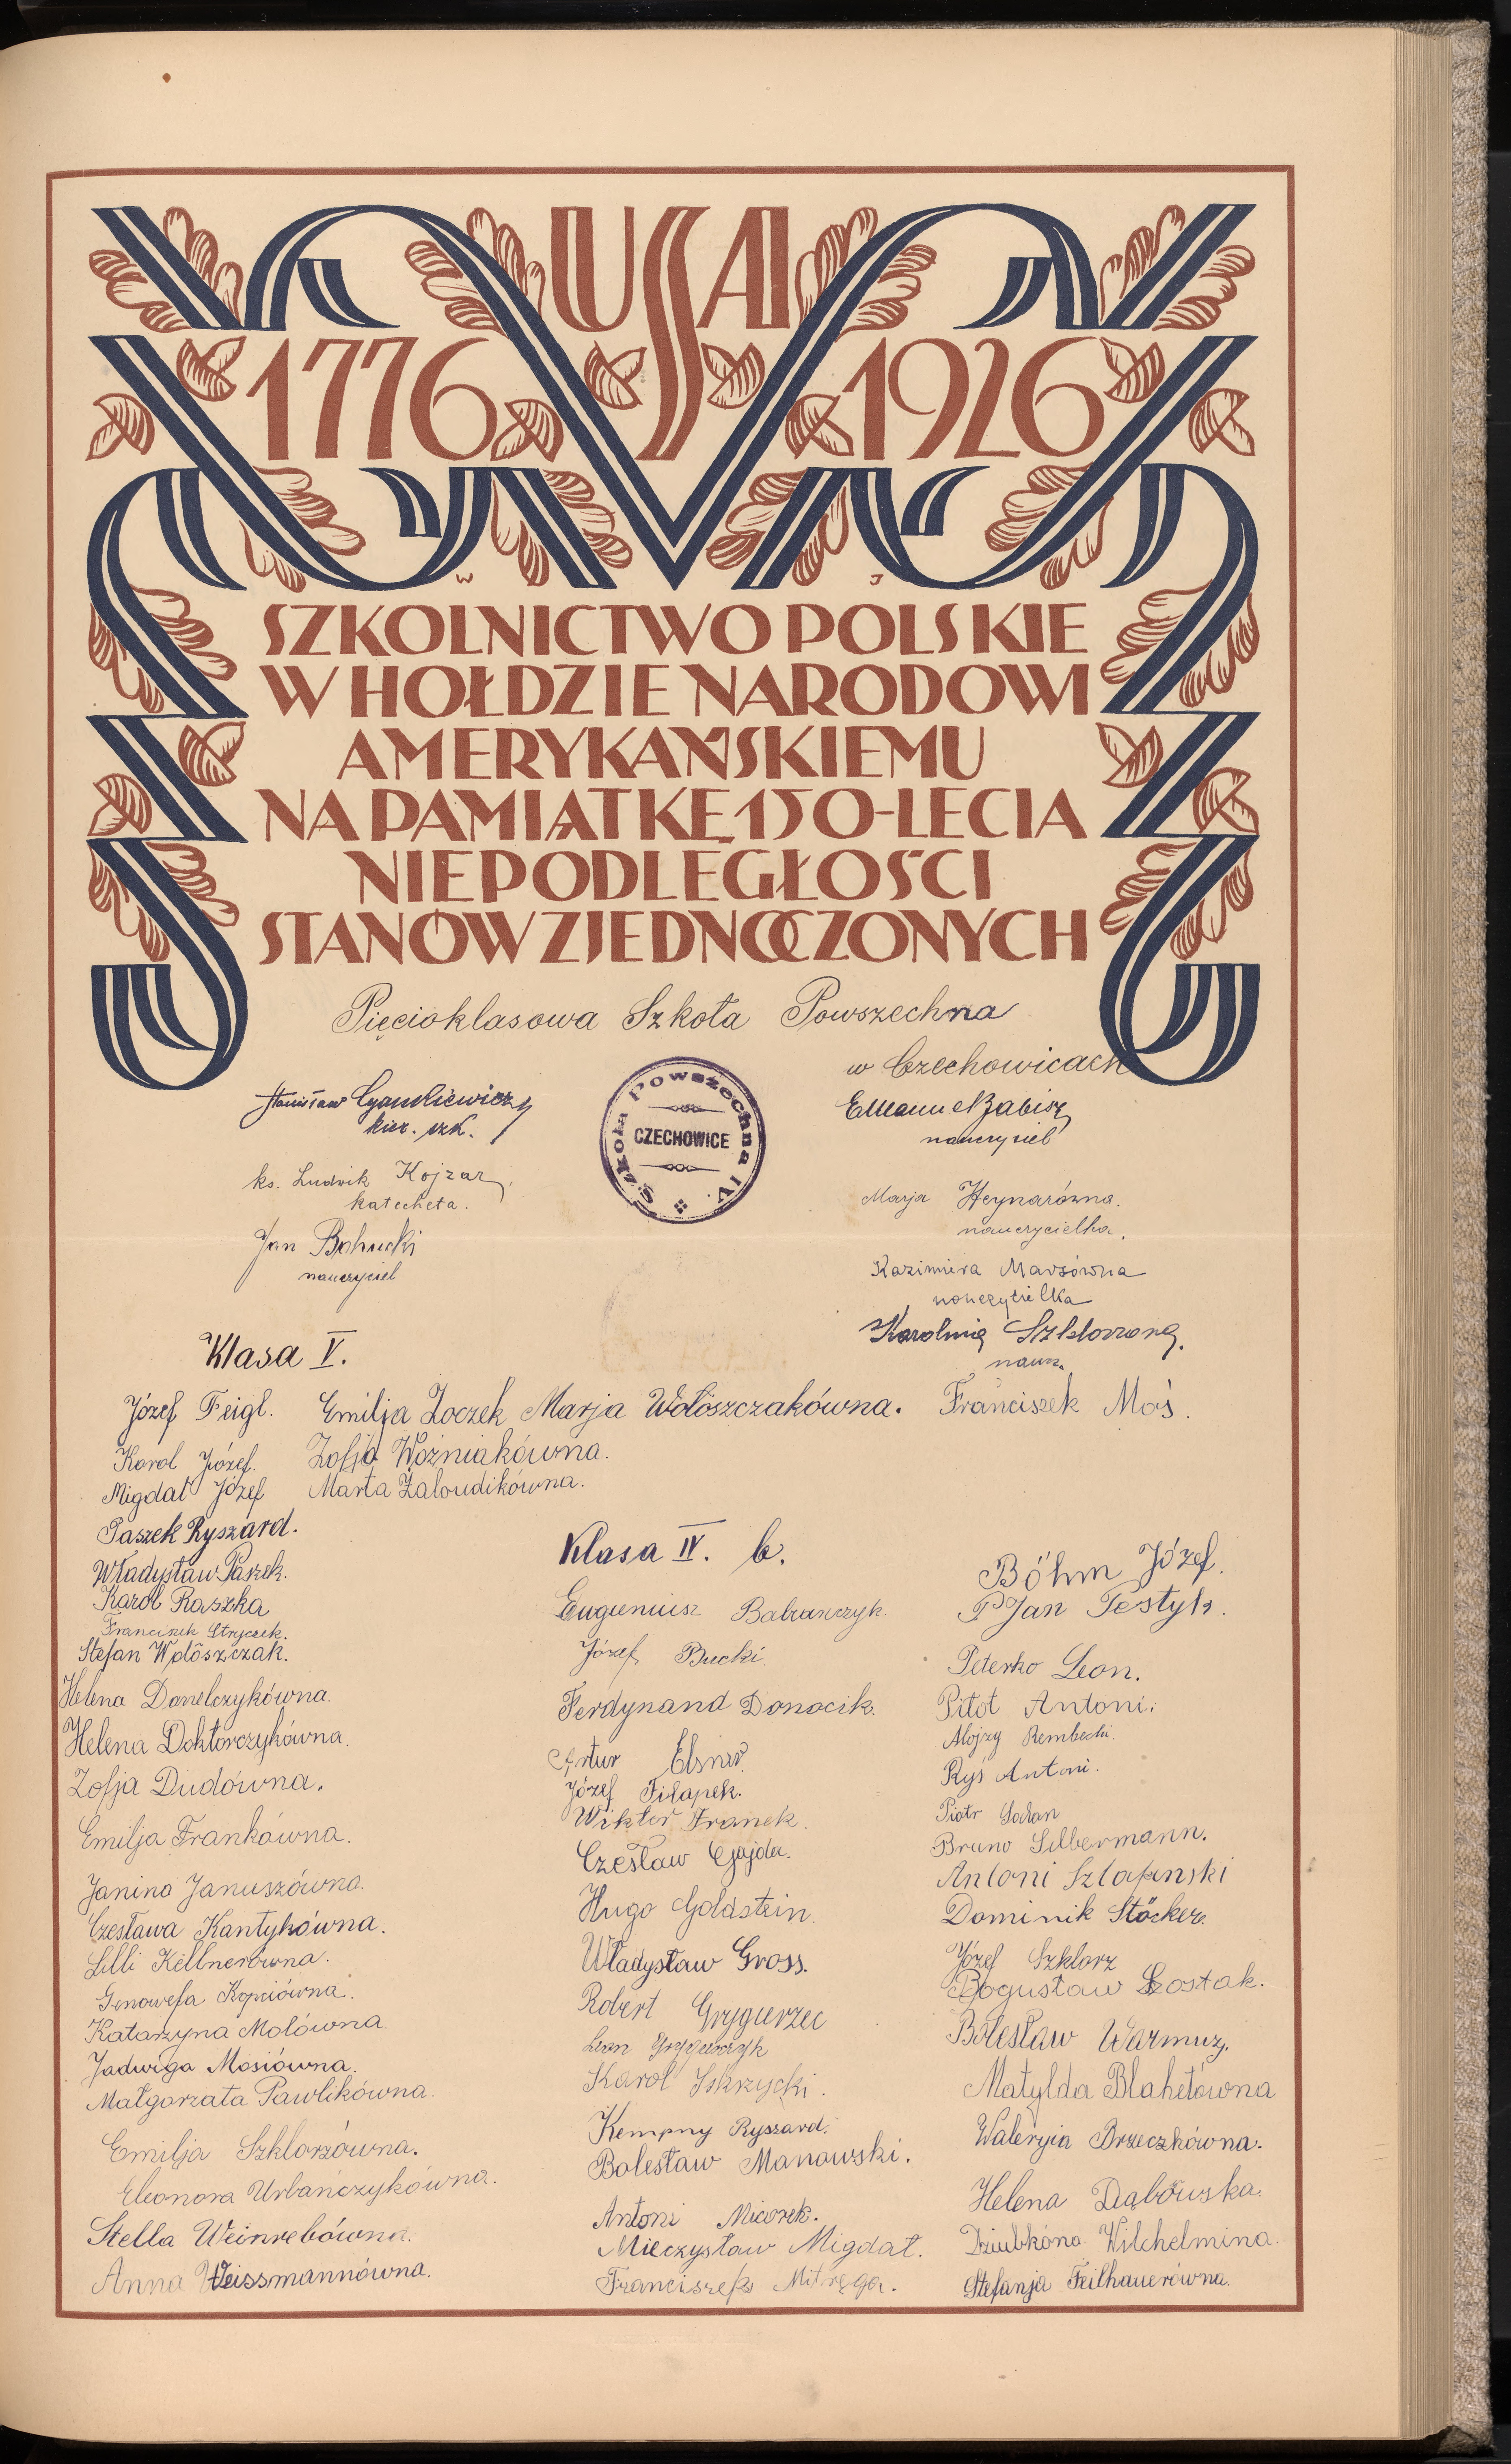 USA
1776 1926
W J
SZKOLNICTWO POLSKIE
W HOŁDZIE NARODOWI
AMERYKAŃSKIEMU
NA PAMIĄTKĘ 150-LECIA
NIEPODLEGŁOŚCI
STANÓW ZJEDNOCZONYCH
Pięcioklasowa Szkoła Powszechna
w Czechowicach
Stanisław
kier. szk.
ks. Ludwik Kojzar
katecheta.
Jan Bohucki
nauczyciel
Szkoła Powszechna IV.
CZECHOWICE
Emanuel Zabisz
nauczyciel
Marja Heynarówna.
nauczycielka.
Kazimiera Marsówna
nauczycielka
Karolina
naucz.
Klasa V.
Józef Feigl. Emilja Zoczek Marja Wołoszczakówna. Franciszek Moś.
Karol Józef. Zofja Woźniakówna.
Migdał Józef Marta Zaloudikówna.
Paszek Ryszard.
Władysław Paszek.
Karol Raszka
Franciszek Stryczek.
Stefan Wołoszczak.
Helena Danelczykówna.
Helena Doktorczykówna.
Zofja Dudówna.
Emilja Frankówna.
Janina Januszówna.
Czesława Kantykówna.
Lilli Kellnerówna.
Genowefa Kopciówna.
Katarzyna Molówna.
Jadwiga Mosiówna.
Małgorzata Pawlikówna.
Emilja Szklorzówna.
Eleonora Urbańczykówna.
Stella Weinrebówna.
Anna Weissmannówna.
Klasa IV. b.
Eugieniusz Babrańczyk.
Józef Bucki.
Ferdynand Donocik.
Artur Elsner.
Józef Filapek.
Wiktor Franek.
Czesław Gajda.
Hugo Goldstein.
Władysław Gross.
Robert Grygierzec
Leon Grygierczyk
Karol Iskrzycki.
Kempny Ryszard.
Bolesław Manowski.
Antoni Micorek.
Mieczysław Migdał.
Franciszek Mitręga.
Böhm Józef.
PJan Pestyk.
Peterko Leon.
Pitot Antoni.
Alojzy Rembecki.
Ryś Antoni.
Piotr
Bruno Silbermann.
Antoni Szlafiński
Dominik Stöcker.
Józef Szklorz
Bogusław Szostak.
Bolesław Warmuz.
Matylda Blahetówna
Waleryia Brzeczkówna.
Helena Dąbówska.
Dziubkóna Wilchelmina.
Stefanja Feilhauerówna.